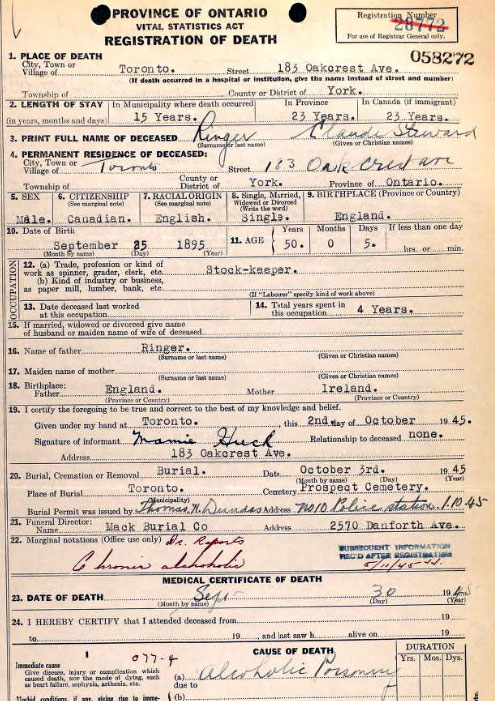 PROVINCE OF ONTARIO
VITAL STATISTICS ACT
REGISTRATION OF DEATH
Registration Number
28772
For use of Registrar General only.
058272
1. PLACE OF DEATH
City, Town or
Village of Toronto. Street 183 Oakcrest Ave.
(If death occurred in a hospital or institution, give the name instead of street and number)
Township of County or District of York.
2. LENGTH OF STAY In Municipality where death occurred In Province In Canada (if immigrant)
(in years, months and days) 15 Years. 23 Years. 23 Years.
3. PRINT FULL NAME OF DECEASED Ringer Claude Steward
(Surname or last name) (Given or Christian names)
4. PERMANENT RESIDENCE OF DECEASED:
City, Town or
Village of Toronto Street 183 Oakcrest ave
Township of County or District of York. Province of Ontario.
5. SEX 6. CITIZENSHIP 7. RACIAL ORIGIN 8. Single, Married, Widowed or Divorced 9. BIRTHPLACE (Province or Country)
(See marginal note) (See marginal note) (Write the word)
Male. Canadian. English. Single. England.
10. Date of Birth 11. AGE Years Months Days If less than one day
September 25 1895 50. 0 5. hrs. or min.
(Month by name) (Day) (Year)
OCCUPATION
12. (a) Trade, profession or kind of work as spinner, grader, clerk, etc. Stock-keeper.
(b) Kind of industry or business, as paper mill, lumber, bank, etc.
(If "Laborer" specify kind of work above)
13. Date deceased last worked at this occupation 14. Total years spent in this occupation 4 Years.
15. If married, widowed or divorced give name of husband or maiden name of wife of deceased
16. Name of father Ringer.
(Surname or last name) (Given or Christian names)
17. Maiden name of mother
(Surname or last name) (Given or Christian names)
18. Birthplace:
Father England. Mother Ireland.
(Province or Country) (Province or Country)
19. I certify the foregoing to be true and correct to the best of my knowledge and belief.
Given under my hand at Toronto. this 2nd. day of October 1945.
Signature of informant Mamie Huck Relationship to deceased none.
Address 183 Oakcrest Ave.
20. Burial, Cremation or Removal Burial. Date October 3rd. 1945
(Month by name) (Day) (Year)
Place of Burial Toronto. Cemetery Prospect Cemetery.
(Municipality)
Burial Permit was issued by Thomas H. Dundass Address No 10 Police station 1.10.45
21. Funeral Director:
Name Mack Burial Co Address 2570 Danforth Ave.
22. Marginal notations (Office use only) Dr. Reports
Chronic alcoholic
SUBSEQUENT INFORMATION
REC'D AFTER REGISTRATION
5/11/45
MEDICAL CERTIFICATE OF DEATH
23. DATE OF DEATH Sept 30 1945
(Month by name) (Day) (Year)
24. I HEREBY CERTIFY that I attended deceased from 19
to 19 and last saw h alive on 19
077-4 CAUSE OF DEATH DURATION
Yrs. Mos. Dys.
Immediate cause (a) Alcoholic Poisoning
Give disease, injury or complication which caused death, not the mode of dying, such as heart failure, asphyxia, asthenia, etc. due to
Morbid conditions, if any, giving rise to imme- (b)